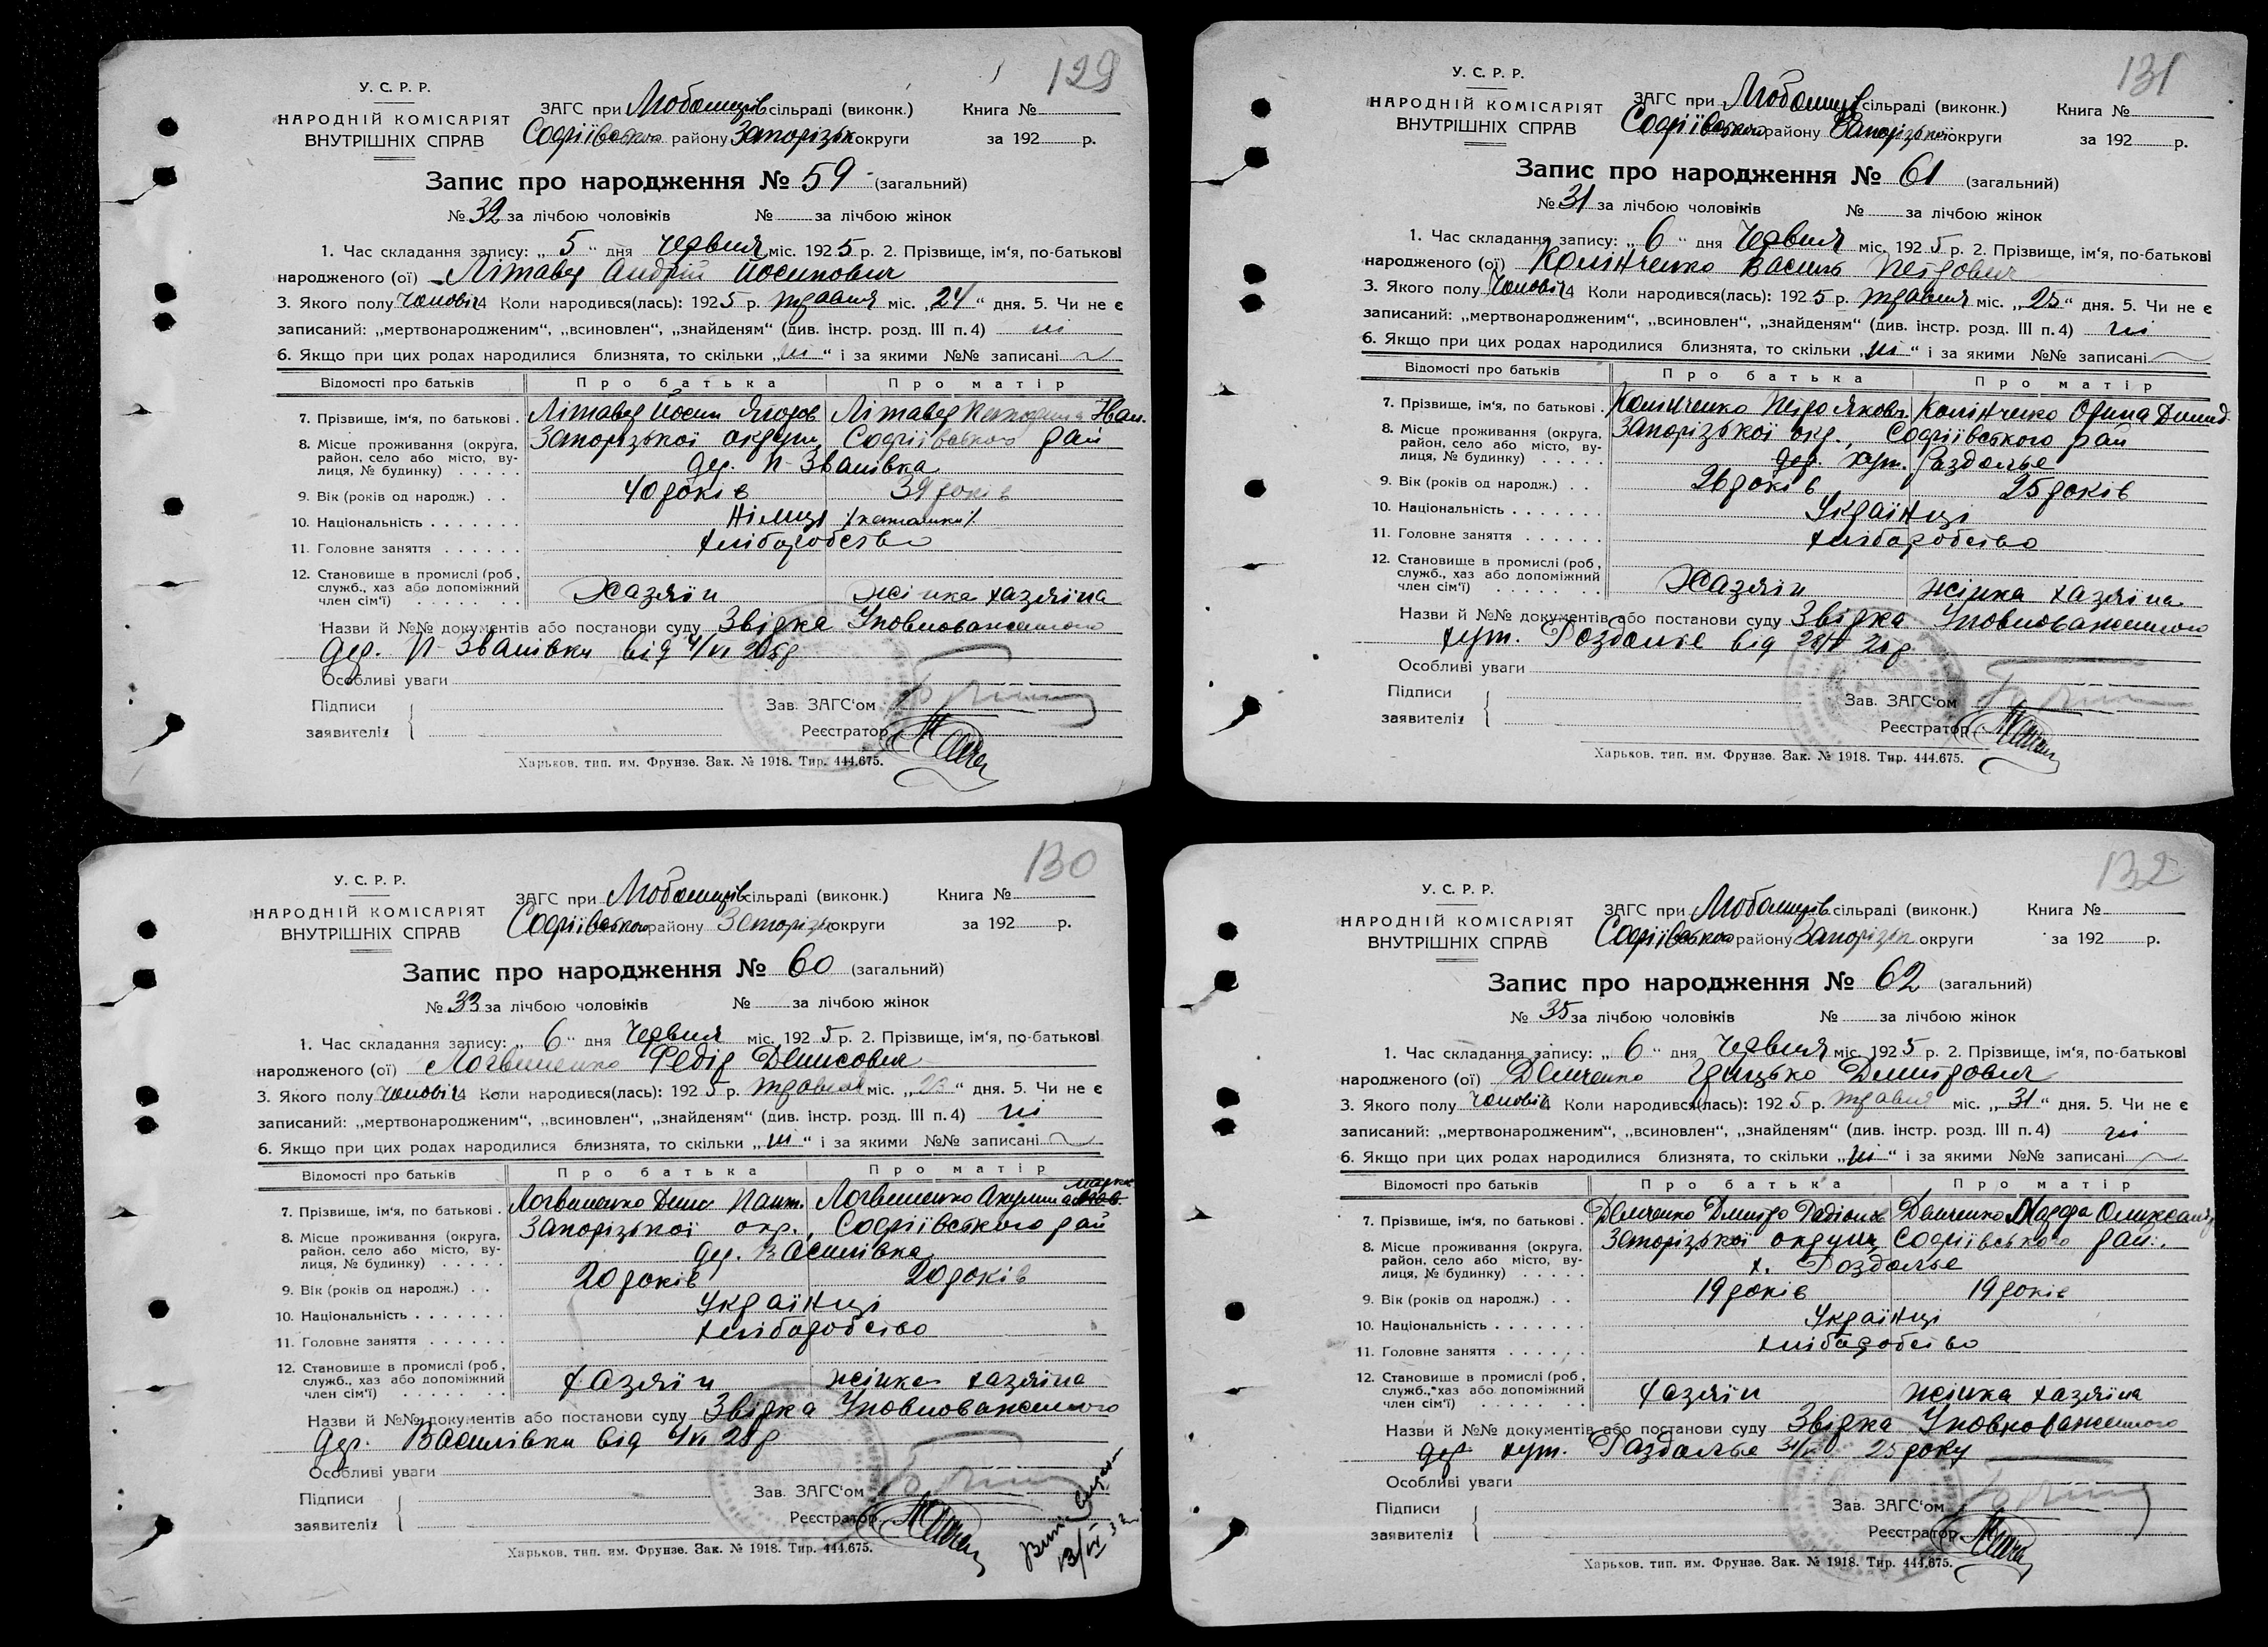 129
У. С. Р. Р.
НАРОДНІЙ КОМІСАРІЯТ
ВНУТРІШНІХ СПРАВ
ЗАГС при Любомирів сільраді (виконк.) Книга №
Софіївського району Запорізьк округи за 192 р.
Запис про народження № 59 (загальний)
№ 32 за лічбою чоловіків № за лічбою жінок
1. Час складання запису: „ 5 “ дня Червня міс. 1925 р. 2. Прізвище, ім'я, по-батькові
народженого (ої) Літавец Андрій Йосипович
3. Якого полу Чоловіч 4 Коли народився(лась): 1925 р. травня міс. „24“ дня. 5. Чи не є
записаний: „мертвонародженим“, „всиновлен“, „знайденям“ (див. інстр. розд. III п. 4) ні
6. Якщо при цих родах народилися близнята, то скільки „ні“ і за якими №№ записані
Відомості про батьків Про батька Про матір
7. Прізвище, ім'я, по батькові . Літавец Йосип Ягоров Літавец Іван.
8. Місце проживання (округа, район, село або місто, вулиця, № будинку) Запорізької округи Софіївського рай
дер. П-Званівка
9. Вік (років од народж.) . . 40 років 39 років
10. Національність Німці /католики/
11. Головне заняття хліборобство
12. Становище в промислі (роб, служб., хаз або допоміжний член сім'ї) Хазяїн жінка хазяїна
Назви й №№ документів або постанови суду Звідка Уповноваженного
дер. П-Званівки від 4/VI 25 р
Особливі уваги
Підписи Зав. ЗАГС'ом
заявителів Реєстратор
Харьков. тип. им. Фрунзе. Зак. № 1918. Тир. 444.675.
131
У. С. Р. Р.
НАРОДНІЙ КОМІСАРІЯТ
ВНУТРІШНІХ СПРАВ
ЗАГС при Любомирів сільраді (виконк.) Книга №
Софіївського району Запорізької округи за 192 р.
Запис про народження № 61 (загальний)
№ 31 за лічбою чоловіків № за лічбою жінок
1. Час складання запису: „ 6 “ дня Червня міс. 1925 р. 2. Прізвище, ім'я, по-батькові
народженого (ої) Колінченко Василь Петрович
3. Якого полу Чоловіч 4 Коли народився(лась): 1925 р. травня міс. „25“ дня. 5. Чи не є
записаний: „мертвонародженим“, „всиновлен“, „знайденям“ (див. інстр. розд. III п. 4) ні
6. Якщо при цих родах народилися близнята, то скільки „ні“ і за якими №№ записані
Відомості про батьків Про батька Про матір
7. Прізвище, ім'я, по батькові . Колінченко Петро Яковл. Колінченко Орина Демид.
8. Місце проживання (округа, район, село або місто, вулиця, № будинку) Запорізької окр., Софіївського рай
дер. хут. Раздолье
9. Вік (років од народж.) . . 26 років 25 років
10. Національність Українці
11. Головне заняття хліборобство
12. Становище в промислі (роб, служб., хаз або допоміжний член сім'ї) Хазяїн жінка хазяіна
Назви й №№ документів або постанови суду Звідка Уповноваженного
хут. Роздолье від 25 р
Особливі уваги
Підписи Зав. ЗАГС'ом
заявителів Реєстратор
Харьков. тип. им. Фрунзе. Зак. № 1918. Тир. 444.675.
130
У. С. Р. Р.
НАРОДНІЙ КОМІСАРІЯТ
ВНУТРІШНІХ СПРАВ
ЗАГС при Любомирів сільраді (виконк.) Книга №
Софіївського району Запорізьк округи за 192 р.
Запис про народження № 60 (загальний)
№ 33 за лічбою чоловіків № за лічбою жінок
1. Час складання запису: „ 6 “ дня Червня міс. 1925 р. 2. Прізвище, ім'я, по-батькові
народженого (ої) Логвиненко Федір Денисович
3. Якого полу Чоловіч 4 Коли народився(лась): 1925 р. травня міс. „23“ дня. 5. Чи не є
записаний: „мертвонародженим“, „всиновлен“, „знайденям“ (див. інстр. розд. III п. 4) ні
6. Якщо при цих родах народилися близнята, то скільки „ні“ і за якими №№ записані
Відомості про батьків Про батька Про матір
7. Прізвище, ім'я, по батькові . Логвиненко Денис Пант. Логвиненко Акулина
8. Місце проживання (округа, район, село або місто, вулиця, № будинку) Запорізької окр., Софіївського рай
дер. Василівка
9. Вік (років од народж.) . . 20 років 20 років
10. Національність Українці
11. Головне заняття хліборобство
12. Становище в промислі (роб, служб., хаз або допоміжний член сім'ї) хазяїн жінка хазяіна
Назви й №№ документів або постанови суду Звідка Уповноваженного
дер. Василівки від 6/VI 25 р
Особливі уваги
Підписи Зав. ЗАГС'ом
заявителів Реєстратор
Харьков. тип. им. Фрунзе. Зак. № 1918. Тир. 444.675.
132
У. С. Р. Р.
НАРОДНІЙ КОМІСАРІЯТ
ВНУТРІШНІХ СПРАВ
ЗАГС при Любомирів сільраді (виконк.) Книга №
Софіївського району Запорізьк округи за 192 р.
Запис про народження № 62 (загальний)
№ 35 за лічбою чоловіків № за лічбою жінок
1. Час складання запису: „ 6 “ дня Червня міс. 1925 р. 2. Прізвище, ім'я, по-батькові
народженого (ої) Демченко Грицько Дмитрович
3. Якого полу Чоловіч 4 Коли народився(лась): 1925 р. травня міс. „31“ дня. 5. Чи не є
записаний: „мертвонародженим“, „всиновлен“, „знайденям“ (див. інстр. розд. III п. 4) ні
6. Якщо при цих родах народилися близнята, то скільки „ні“ і за якими №№ записані
Відомості про батьків Про батька Про матір
7. Прізвище, ім'я, по батькові . Демченко Дмитро Радіонов Демченко Марфа Олександ
8. Місце проживання (округа, район, село або місто, вулиця, № будинку) Запорізької округи Софіївського рай.
х. Роздолье
9. Вік (років од народж.) . . 19 років 19 років
10. Національність Українці
11. Головне заняття хліборобство
12. Становище в промислі (роб, служб., хаз або допоміжний член сім'ї) хазяїн жінка хазяїна
Назви й №№ документів або постанови суду Звідка Уповноваженного
дер хут. Раздолье 25 року
Особливі уваги
Підписи Зав. ЗАГС'ом
заявителів Реєстратор
Харьков. тип. им. Фрунзе. Зак. № 1918. Тир. 444.675.